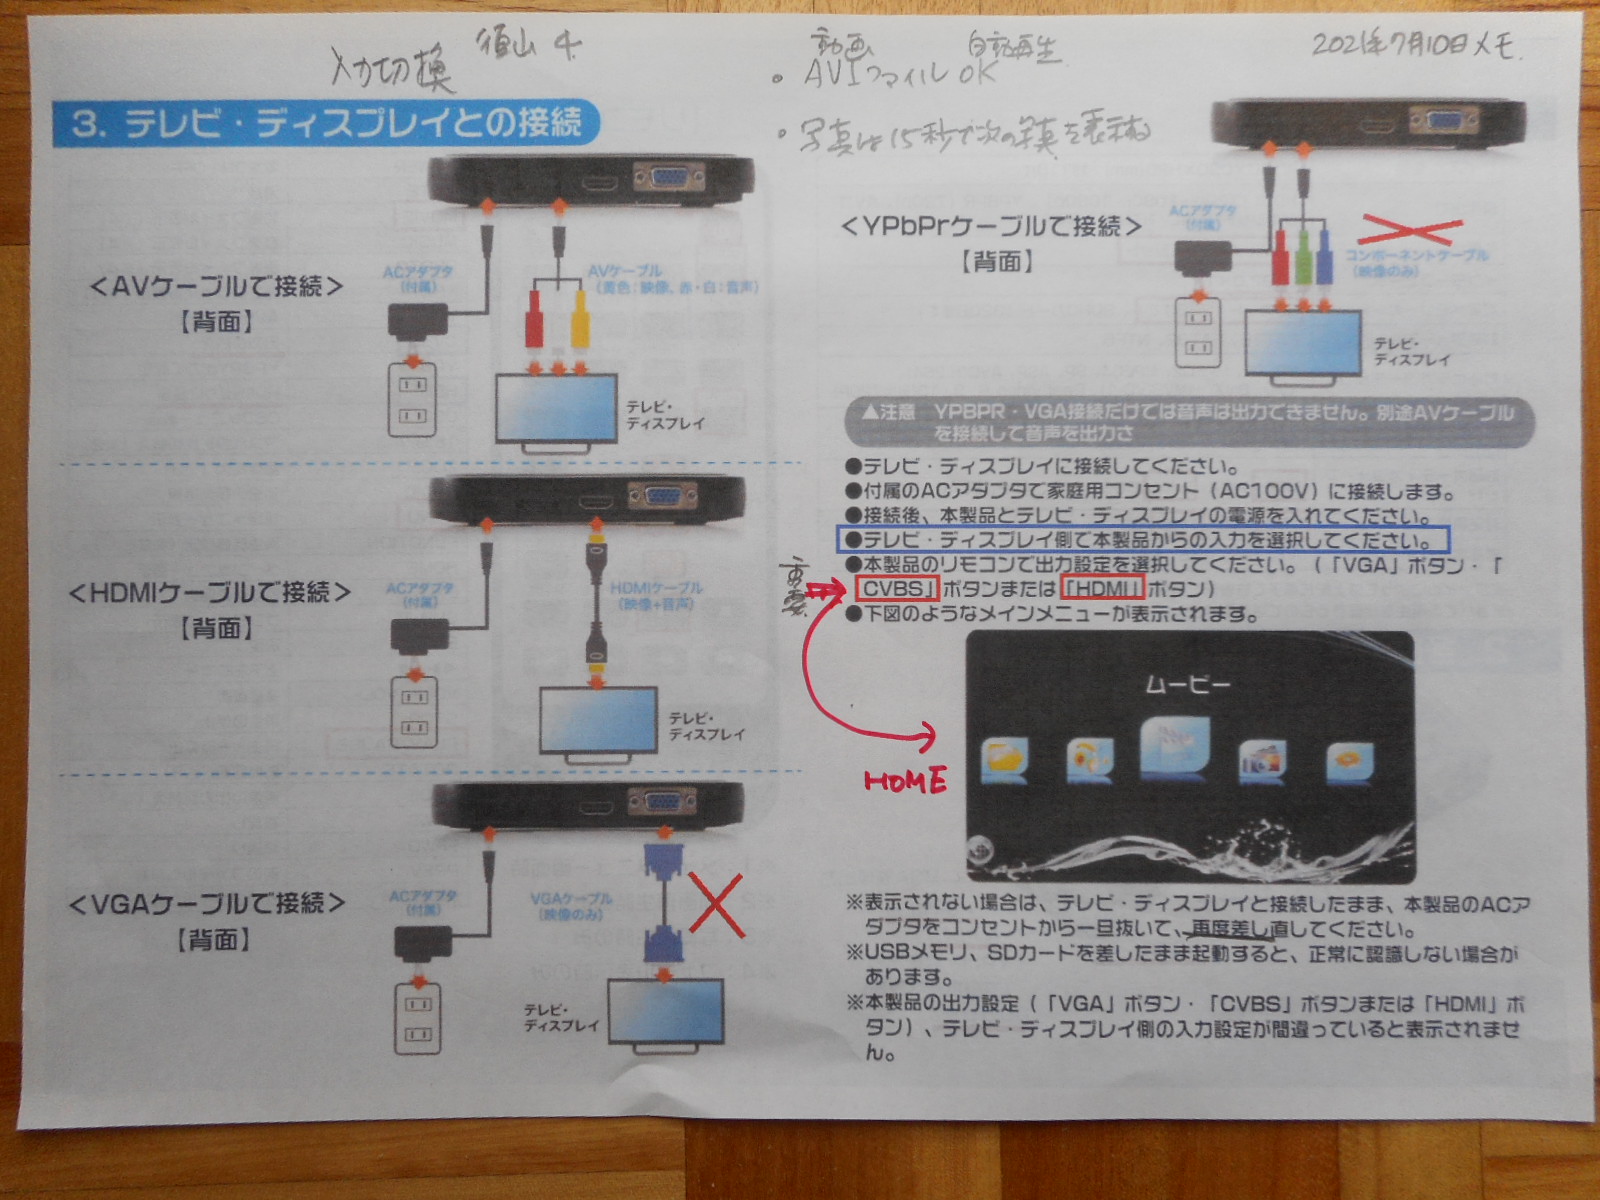 入力切換
4
動画 自動再生
・AVIファイルOK
・写真は15秒で次の写真を表示する
2021年7月10日メモ.
3. テレビ・ディスプレイとの接続
<AVケーブルで接続>
【背面】
ACアダプタ
(付属)
AVケーブル
(黄色：映像、赤・白：音声)
テレビ・
ディスプレイ
<HDMIケーブルで接続>
【背面】
ACアダプタ
(付属)
HDMIケーブル
(映像+音声)
テレビ・
ディスプレイ
<VGAケーブルで接続>
【背面】
ACアダプタ
(付属)
VGAケーブル
(映像のみ)
テレビ・
ディスプレイ
<YPbPrケーブルで接続>
【背面】
ACアダプタ
(付属)
コンポーネントケーブル
(映像のみ)
テレビ・
ディスプレイ
▲注意 YPBPR・VGA接続だけでは音声は出力できません。別途AVケーブル
を接続して音声を出力さ
●テレビ・ディスプレイに接続してください。
●付属のACアダプタで家庭用コンセント（AC100V）に接続します。
●接続後、本製品とテレビ・ディスプレイの電源を入れてください。
●テレビ・ディスプレイ側で本製品からの入力を選択してください。
●本製品のリモコンで出力設定を選択してください。（「VGA」ボタン・「
CVBS」ボタンまたは「HDMI」ボタン）
●下図のようなメインメニューが表示されます。
重要
HOME
ムービー
※表示されない場合は、テレビ・ディスプレイと接続したまま、本製品のACア
ダプタをコンセントから一旦抜いて、再度差し直してください。
※USBメモリ、SDカードを差したまま起動すると、正常に認識しない場合が
あります。
※本製品の出力設定（「VGA」ボタン・「CVBS」ボタンまたは「HDMI」ボ
タン）、テレビ・ディスプレイ側の入力設定が間違っていると表示されませ
ん。